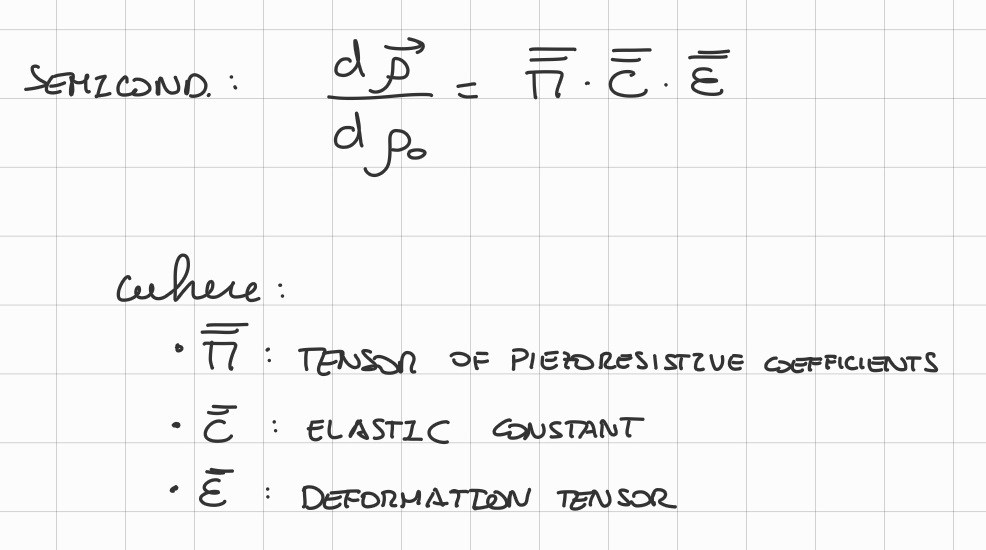 SEMICOND. : dρ⃗ / dρ₀ = Π̿ · C̿ · ε̿
where :
• Π̿ : TENSOR OF PIEZORESISTIVE COEFFICIENTS
• C̿ : ELASTIC CONSTANT
• ε̿ : DEFORMATION TENSOR